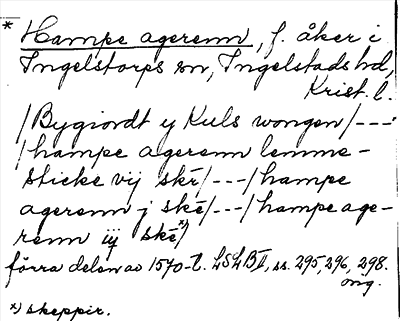 * Hampe agerenn, f. åker i
Ingelstorps sn, Ingelstads hd,
Krist. l.
/Bygiordt y Kuls wongen/---
/hampe agerenn lemme-
sticke vij skē/---/hampe
agerenn j skē/---/hampe age-
renn iij skē*)
förra delen av 1570-t. LSLB II, ss. 295, 296, 298.
orig.
*) skeppir.